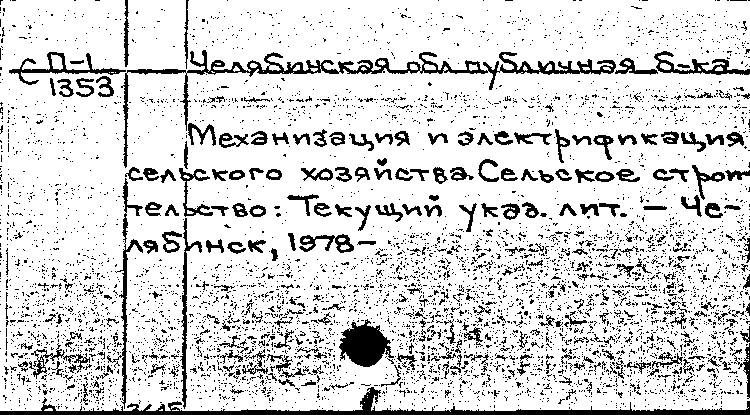 С П-1 Челябинская обл публичная б-ка
1353
Механизация и электрификация
сельского хозяйства. Сельское строи-
тельство: Текущий указ. лит. – Че-
лябинск, 1978–